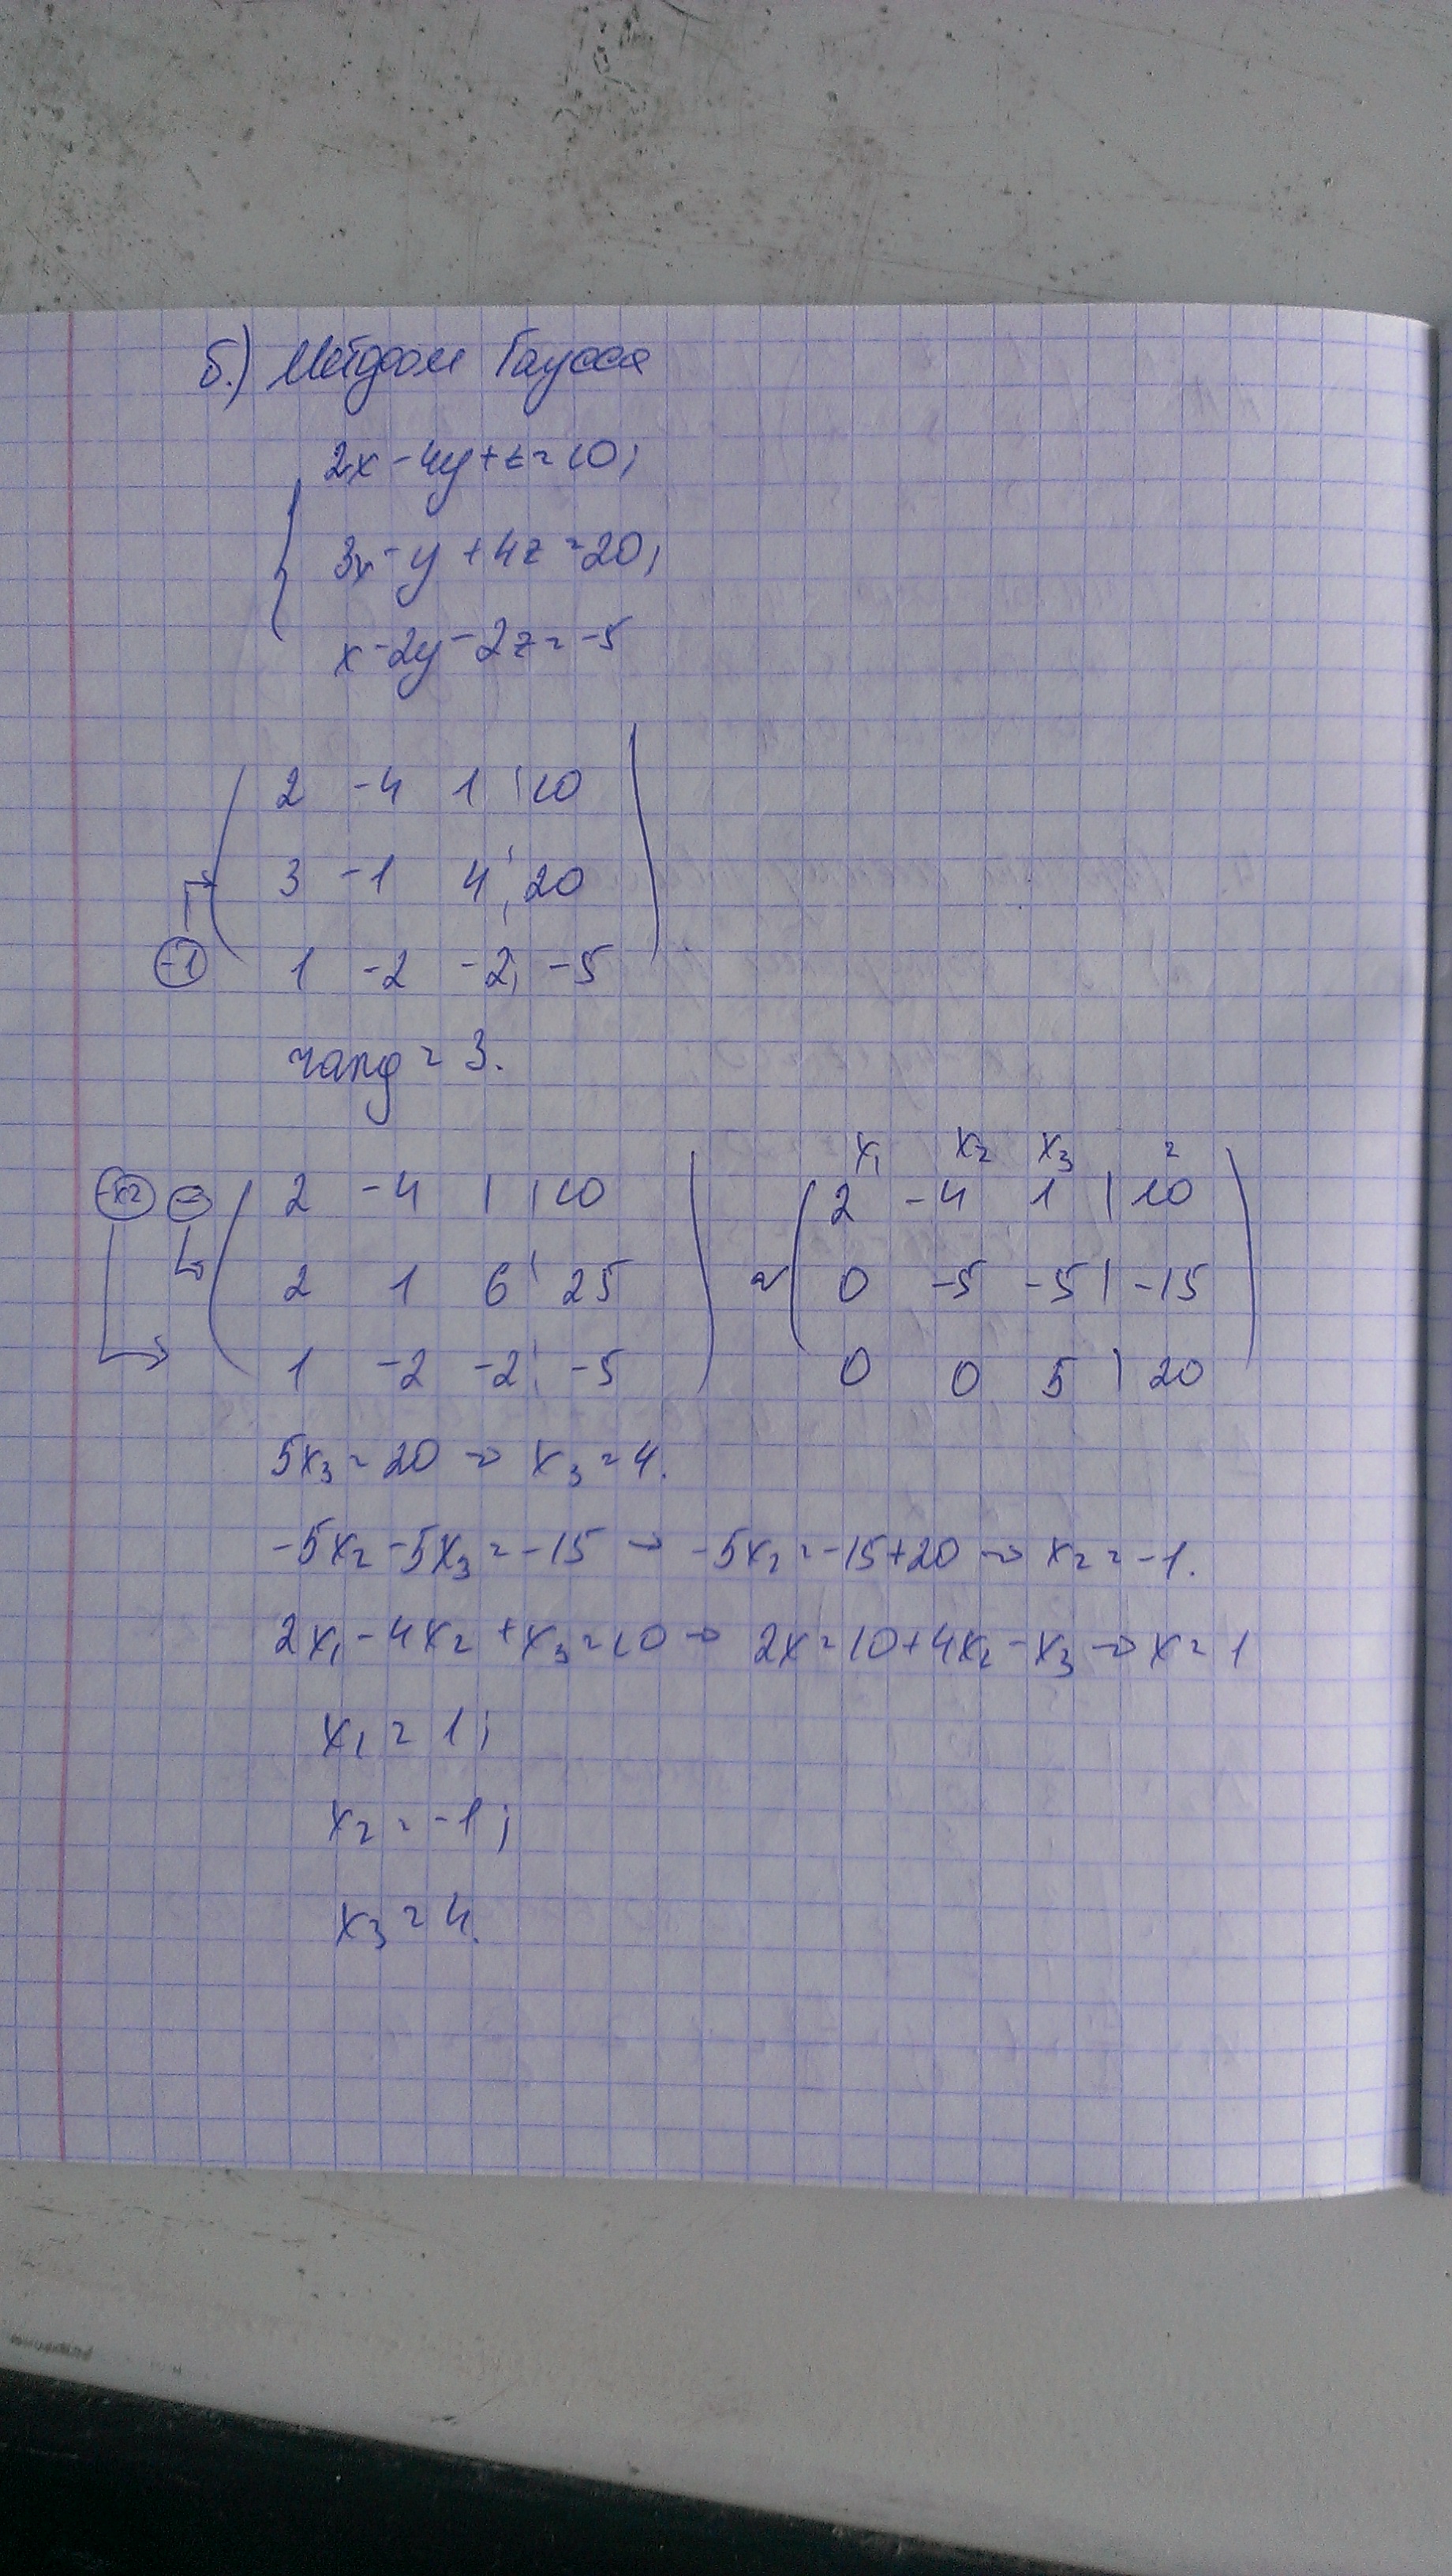 б.) Методом Гаусса
2x - 4y + z = 10;
3x - y + 4z = 20;
x - 2y - 2z = -5
2 -4 1 | 10
3 -1 4 | 20
-1 1 -2 -2 | -5
rang = 3.
x₁ x₂ x₃ =
2 -4 1 | 10 2 -4 1 | 10
2 1 6 | 25 ~ 0 -5 -5 | -15
1 -2 -2 | -5 0 0 5 | 20
5x₃ = 20 → x₃ = 4.
-5x₂ - 5x₃ = -15 → -5x₂ = -15 + 20 → x₂ = -1.
2x₁ - 4x₂ + x₃ = 10 → 2x = 10 + 4x₂ - x₃ → x = 1
x₁ = 1;
x₂ = -1;
x₃ = 4.